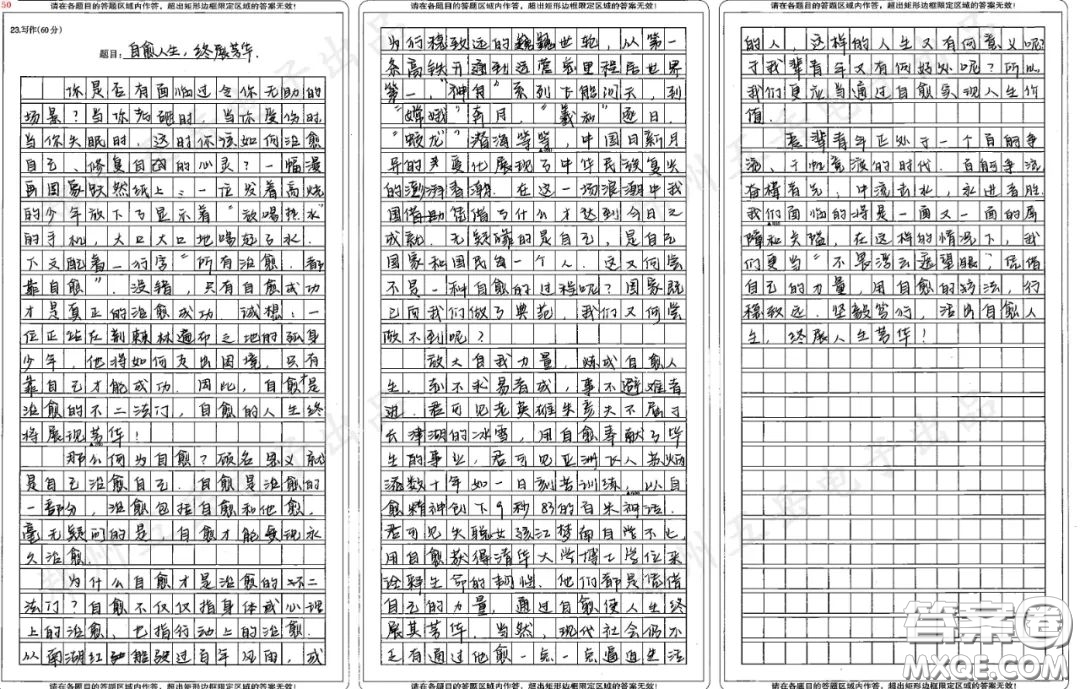 50
请在各题目的答题区域内作答,超出矩形边框限定区域的答案无效!
23.写作(60分)
题目:自愈人生,终展芳华.
你是否有面临过令你无助的
场景?当你
当你失眠时.这时你该如何治愈
自己,修复自己的心灵?一幅漫
画图象跃然纸上:一位发着高烧
的少年放下了显示着“多喝热水”
的手机,大口大口地喝起了水.
下文配着一行字“所有治愈.都
靠自愈”.没错,只有自愈成功
才是真正的治愈成功.试想:一
位正站在荆棘林遍布之地的孤身
少年,他将如何走出困境,只有
靠自己才能成功.因此,自愈才是
治愈的不二法门,自愈的人生终
将展现芳华!
那么何为自愈?顾名思义就
是自己治愈自己.自愈是治愈的
一部分,治愈包括自愈和他愈,
毫无疑问的是,自愈才能实现永
久治愈.
为什么自愈才是治愈的不二
法门?自愈不仅仅指身体或心理
上的治愈,也指行动上的治愈.
从南湖红船驶过百年风雨,成
请在各题目的答题区域内作答,超出矩形边框限定区域的答案无效!
请在各题目的答题区域内作答,超出矩形边框限定区域的答案无效!
为行稳致远的巍巍巨轮,从第一
条高铁开通到运营里程居世界
第一,“神舟”系列飞船问天,到
“嫦娥”奔月,“羲和”逐日,
“蛟龙”潜海等等,中国日新月
异的变化展现了中华民族复兴
的澎湃春潮.在这一场浪潮中我
国凭借了什么才达到今日之
成就,无疑靠的是自己,是自己
国家和国民每一个人.这又何尝
不是一种自愈的过程呢?国家既
已向我们做了典范,我们又何尝
做不到呢?
放大自我力量,炼成自愈人
生.志不求易者成,事不避难者
进.君可见老英雄朱彦夫不屈于
长津湖的冰雪,用自愈奉献了毕
生的事业,君可见亚洲飞人苏炳
添数十年如一日刻苦训练,以自
愈精神创下9秒83的百米神话.
君可见失聪女孩江梦南自学不止,
用自愈获得清华大学博士学位来
诠释生命的韧性.他们都是凭借
自己的力量,通过自愈使人生终
展其芳华.当然,现代社会仍不
乏有通过他愈一点一点逼近生活
请在各题目的答题区域内作答,超出矩形边框限定区域的答案无效!
请在各题目的答题区域内作答,超出矩形边框限定区域的答案无效!
的人,这样的人生又有何意义呢?
于我辈青年又有何好处呢?所以
我们更应当通过自愈实现人生价
值.
吾辈青年正处于一个百舸争
流,千帆竞渡的时代.百舸争流
奋楫者先,中流击水,永进者胜.
我们面临的将是一面又一面的屏
障和关隘,在这样的情况下,我
们更当“不畏浮云遮望眼”,凭借
自己的力量,用自愈的疗法,行
稳致远.坚毅笃行,活出自愈人
生,终展人生芳华!
请在各题目的答题区域内作答,超出矩形边框限定区域的答案无效!
答案圈
MXQE.COM